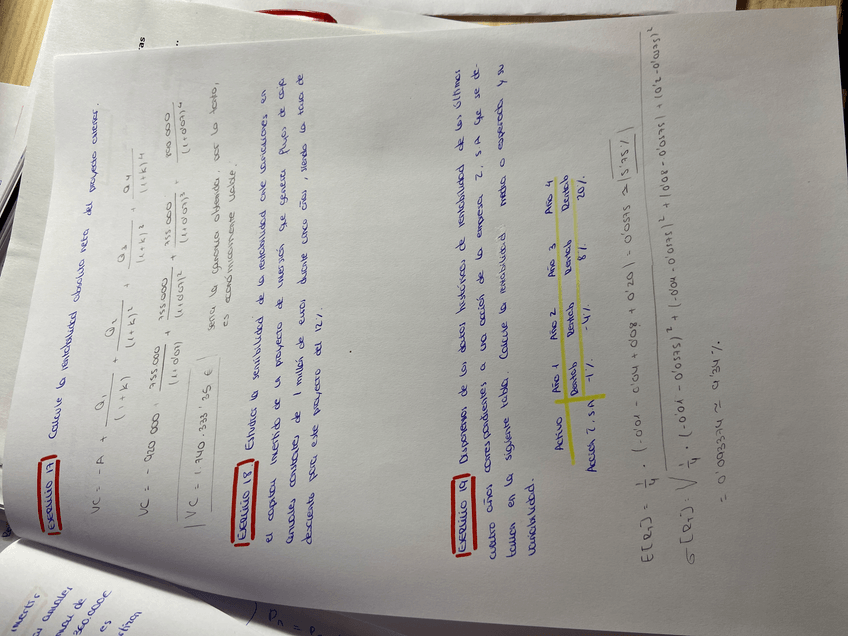 EJERCICIO 17 Calcule la rentabilidad absoluta neta del proyecto anterior.
VC = - A + Q1 / (1+k) + Q2 / (1+k)^2 + Q3 / (1+k)^3 + Q4 / (1+k)^4
VC = - 920 000 + 755 000 / (1+0'07) + 755 000 / (1+0'07)^2 + 755 000 / (1+0'07)^3 + 100.000 / (1+0'07)^4
VC = 1.740.333'35 € sería la ganancia obtenida, por lo tanto,
es económicamente viable.
EJERCICIO 18 Estudiar la sensibilidad de la rentabilidad ante variaciones en
el capital invertido de un proyecto de inversión que genera flujos de caja
anuales constantes de 1 millón de euros durante cinco años, siendo la tasa de
descuento para este proyecto del 12%.
EJERCICIO 19 Disponemos de los datos históricos de rentabilidad de los últimos
cuatro años correspondientes a una acción de la empresa Z, S.A que se de-
tallan en la siguiente tabla. Calcule la rentabilidad media o esperada y su
variabilidad.
Activo Año 1 Año 2 Año 3 Año 4
Rentab Rentab Rentab Rentab
Acción Z, S.A -1% -4% 8% 20%
E[R1] = 1/4 · (-0'01 - 0'04 + 0'08 + 0'20) = 0'0575 ≈ 5'75%
σ[R1] = √ 1/4 · (-0'01 - 0'0575)^2 + (-0'04 - 0'0575)^2 + (0'08 - 0'0575) + (0'2 - 0'0575)^2
= 0'093374 ≈ 9'34%
invertir
anuales
de
360.000€
es